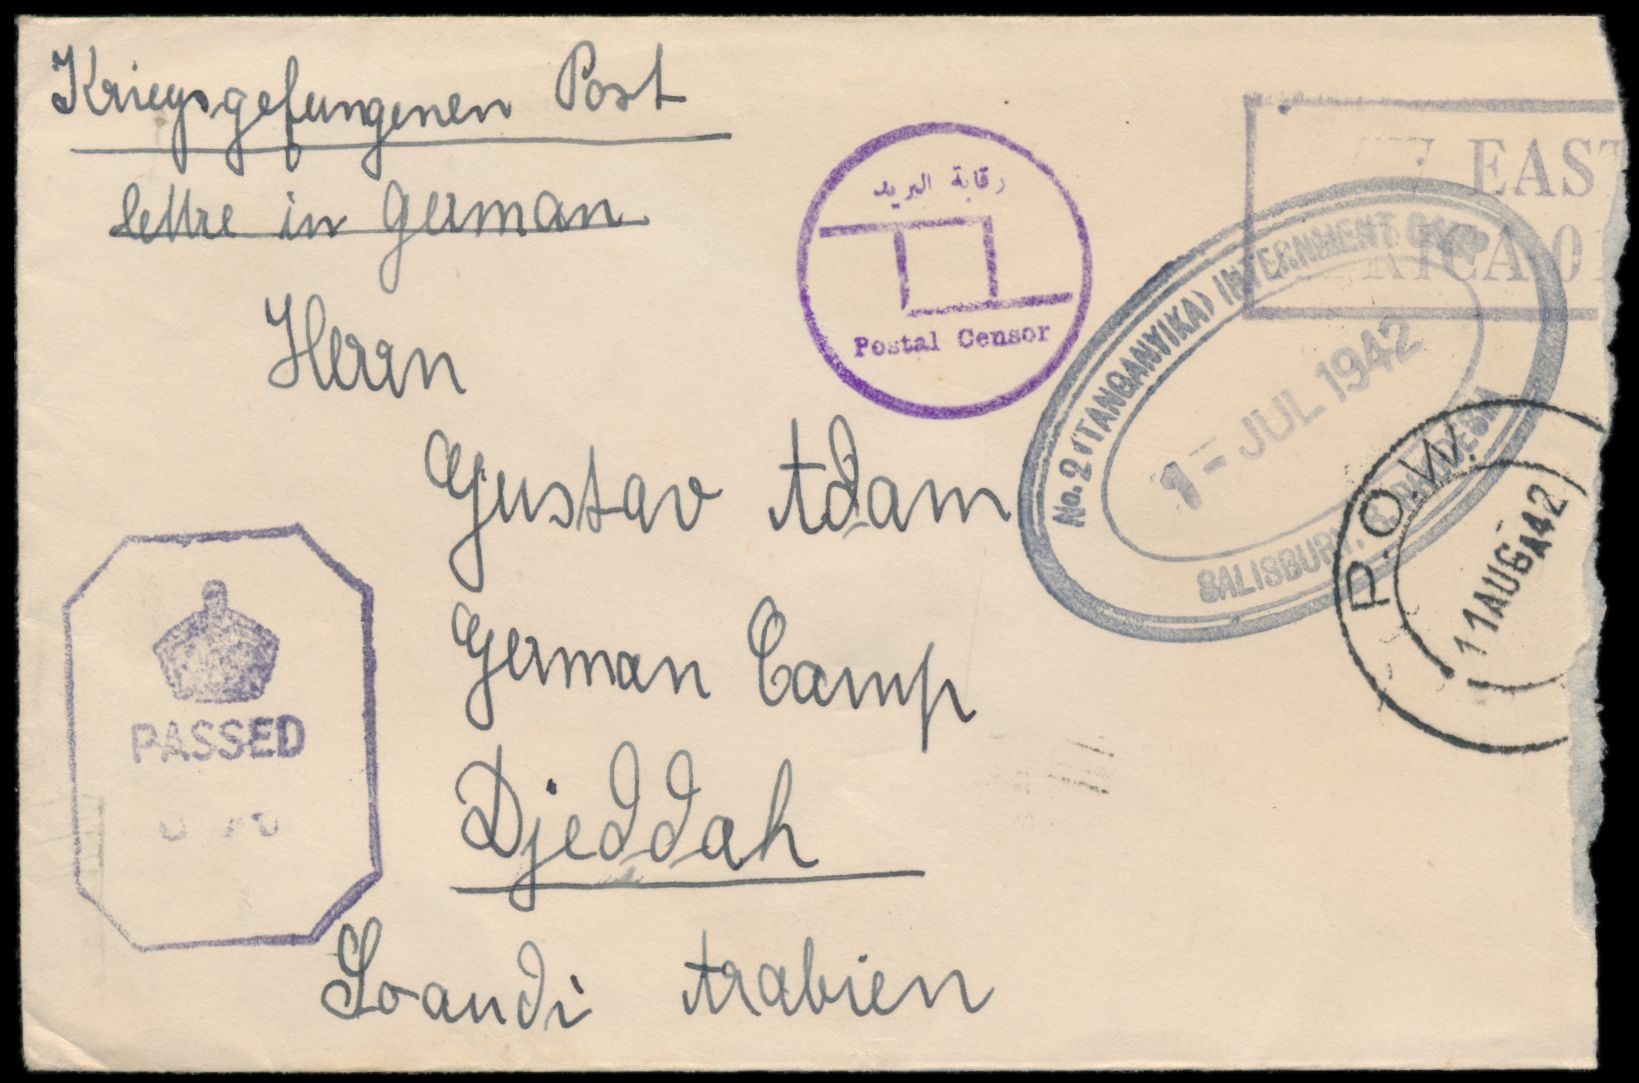 Kriegsgefangenen Post
lettre in German
Herrn
Gustav Adam
German Camp
Djeddah
Soaudi Arabien
رقابة البريد
Postal Censor
EAST
No. 2 (TANGANYIKA) INTERNMENT CAMP
1 - JUL 1942
SALISBURY, RHODESIA
P.O.W.
11 AUG 42
PASSED